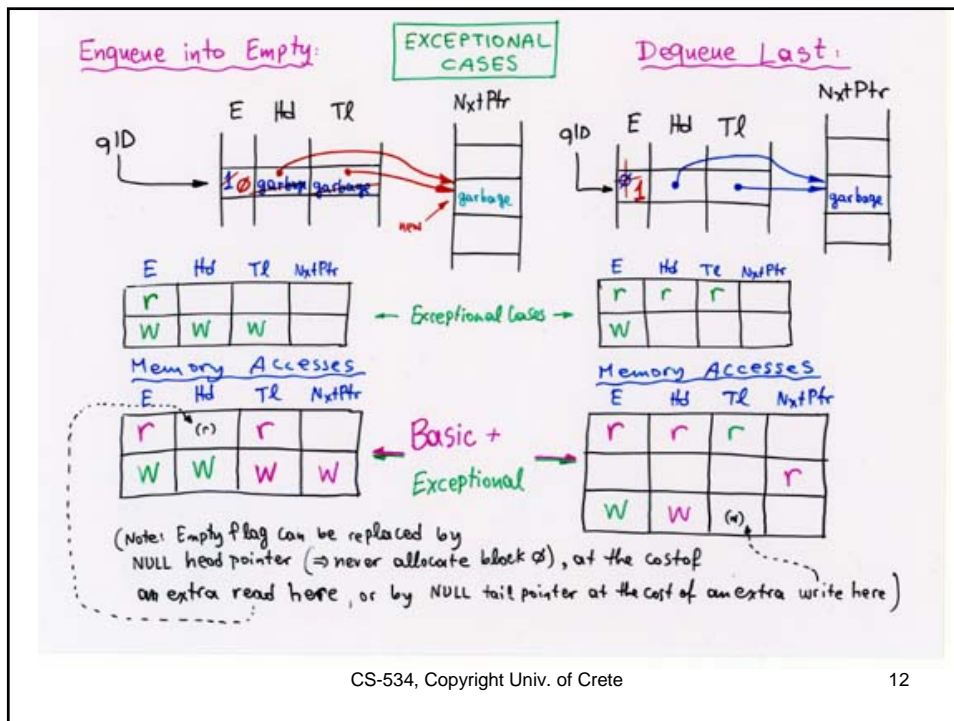 Enqueue into Empty:
EXCEPTIONAL
CASES
Dequeue Last:
E Hd Tl
NxtPtr
qID
1 0 garbage garbage
garbage
new
E Hd Tl
NxtPtr
qID
0 1
garbage
E Hd Tl NxtPtr
r
W W W
← Exceptional Cases →
E Hd Tl NxtPtr
r r r
W
Memory Accesses
E Hd Tl NxtPtr
r (r) r
W W W W
Basic +
Exceptional
Memory Accesses
E Hd Tl NxtPtr
r r r
r
W W (w)
(Note: Empty flag can be replaced by
NULL head pointer (⇒ never allocate block ∅), at the cost of
an extra read here, or by NULL tail pointer at the cost of an extra write here)
CS-534, Copyright Univ. of Crete
12